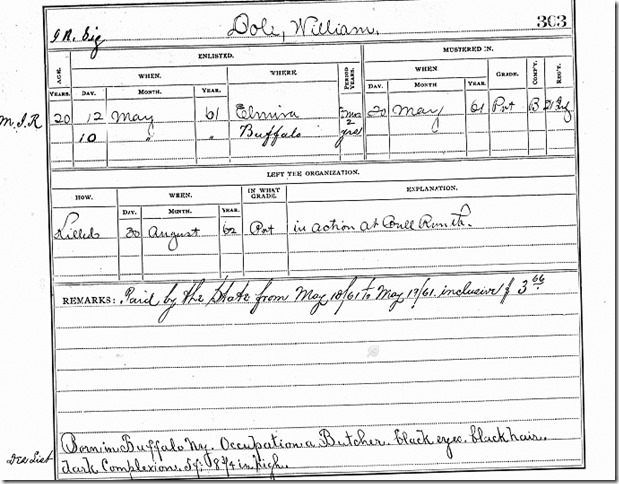 Dole, William. 303
J. R. Sig
AGE. ENLISTED. MUSTERED IN.
YEARS. WHEN. WHERE PERIOD YEARS. WHEN GRADE. COMP'Y. REG'T.
DAY. MONTH YEAR. DAY. MONTH YEAR.
M.I.R 20 12 May 61 Elmira 20 May 61 Pvt B 21 Inf
10 " " Buffalo 2 yrs
LEFT THE ORGANIZATION.
HOW. WHEN. IN WHAT GRADE. EXPLANATION.
DAY. MONTH. YEAR.
Killed 30 August 62 Pvt in action at Bull Run Va.
REMARKS: Paid by the State from May 10/61 to May 19/61. inclusive $ 3 66
Born in Buffalo Ny. Occupation a Butcher. black eyes. black hair.
Des List dark Complexion. 5 ft 8 3/4 in high.